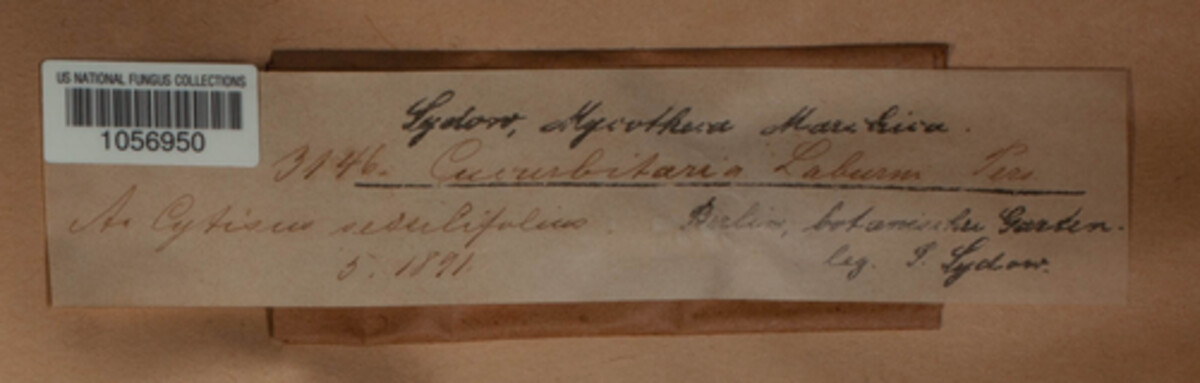 US NATIONAL FUNGUS COLLECTIONS
1056950
Sydow, Mycotheca Marchica.
3146. Cucurbitaria Laburni Pers
A. Cytisus sessilifolius. Berlin, botanischer Garten.
5. 1891. leg. P. Sydow.